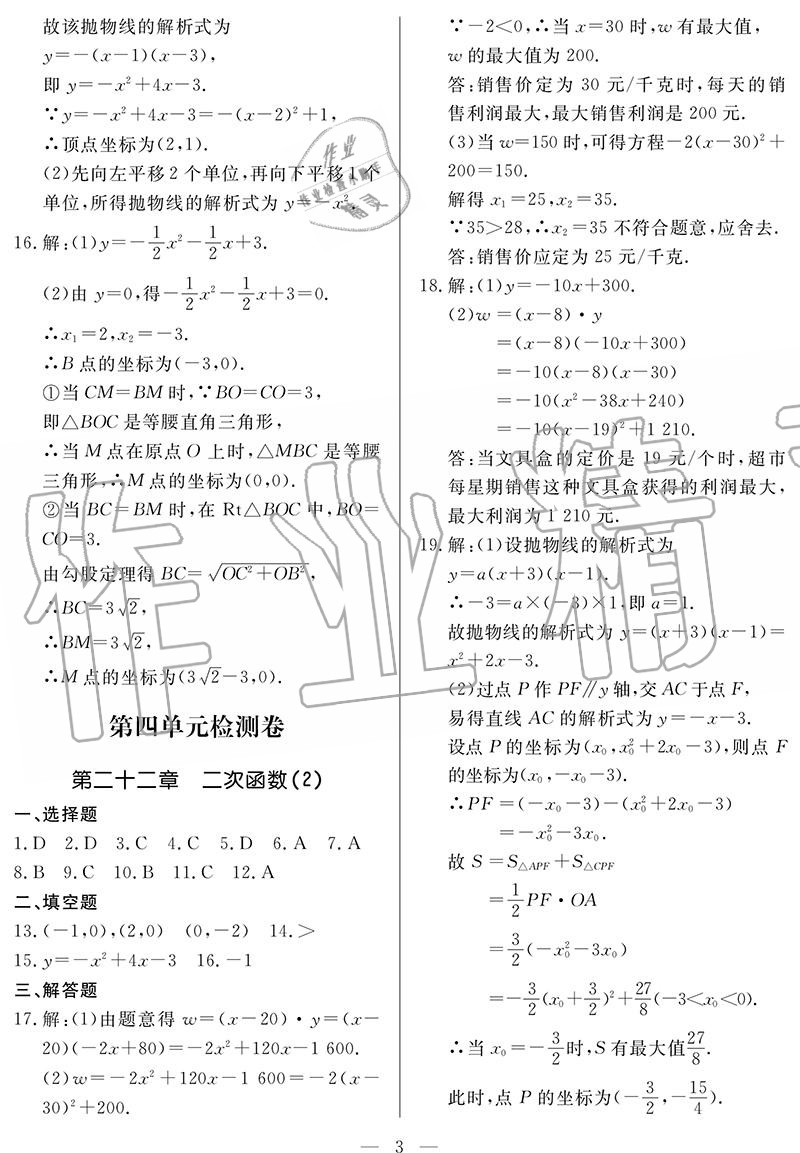 故该抛物线的解析式为
y=-(x-1)(x-3),
即 y=-x²+4x-3.
∵y=-x²+4x-3=-(x-2)²+1,
∴顶点坐标为(2,1).
(2)先向左平移 2 个单位,再向下平移 1 个
单位,所得抛物线的解析式为 y=-x².
16.解:(1)y=-1/2x²-1/2x+3.
(2)由 y=0,得-1/2x²-1/2x+3=0.
∴x₁=2,x₂=-3.
∴B 点的坐标为(-3,0).
①当 CM=BM 时,∵BO=CO=3,
即△BOC 是等腰直角三角形,
∴当 M 点在原点 O 上时,△MBC 是等腰
三角形,∴M 点的坐标为(0,0).
②当 BC=BM 时,在 Rt△BOC 中,BO=
CO=3.
由勾股定理得 BC=√(OC²+OB²),
∴BC=3√2,
∴BM=3√2,
∴M 点的坐标为(3√2-3,0).
第四单元检测卷
第二十二章 二次函数(2)
一、选择题
1.D 2.D 3.C 4.C 5.D 6.A 7.A
8.B 9.C 10.B 11.C 12.A
二、填空题
13.(-1,0),(2,0) (0,-2) 14.>
15.y=-x²+4x-3 16.-1
三、解答题
17.解:(1)由题意得 w=(x-20)·y=(x-
20)(-2x+80)=-2x²+120x-1 600.
(2)w=-2x²+120x-1 600=-2(x-
30)²+200.
∵-2<0,∴当 x=30 时,w 有最大值,
w 的最大值为 200.
答:销售价定为 30 元/千克时,每天的销
售利润最大,最大销售利润是 200 元.
(3)当 w=150 时,可得方程-2(x-30)²+
200=150.
解得 x₁=25,x₂=35.
∵35>28,∴x₂=35 不符合题意,应舍去.
答:销售价应定为 25 元/千克.
18.解:(1)y=-10x+300.
(2)w=(x-8)·y
=(x-8)(-10x+300)
=-10(x-8)(x-30)
=-10(x²-38x+240)
=-10(x-19)²+1 210.
答:当文具盒的定价是 19 元/个时,超市
每星期销售这种文具盒获得的利润最大,
最大利润为 1 210 元.
19.解:(1)设抛物线的解析式为
y=a(x+3)(x-1).
∴-3=a×(-3)×1,即 a=1.
故抛物线的解析式为 y=(x+3)(x-1)=
x²+2x-3.
(2)过点 P 作 PF∥y 轴,交 AC 于点 F,
易得直线 AC 的解析式为 y=-x-3.
设点 P 的坐标为(x₀,x₀²+2x₀-3),则点 F
的坐标为(x₀,-x₀-3).
∴PF=(-x₀-3)-(x₀²+2x₀-3)
=-x₀²-3x₀.
故 S=S△APF+S△CPF
=1/2PF·OA
=3/2(-x₀²-3x₀)
=-3/2(x₀+3/2)²+27/8(-3<x₀<0).
∴当 x₀=-3/2时,S 有最大值27/8.
此时,点 P 的坐标为(-3/2,-15/4).
— 3 —